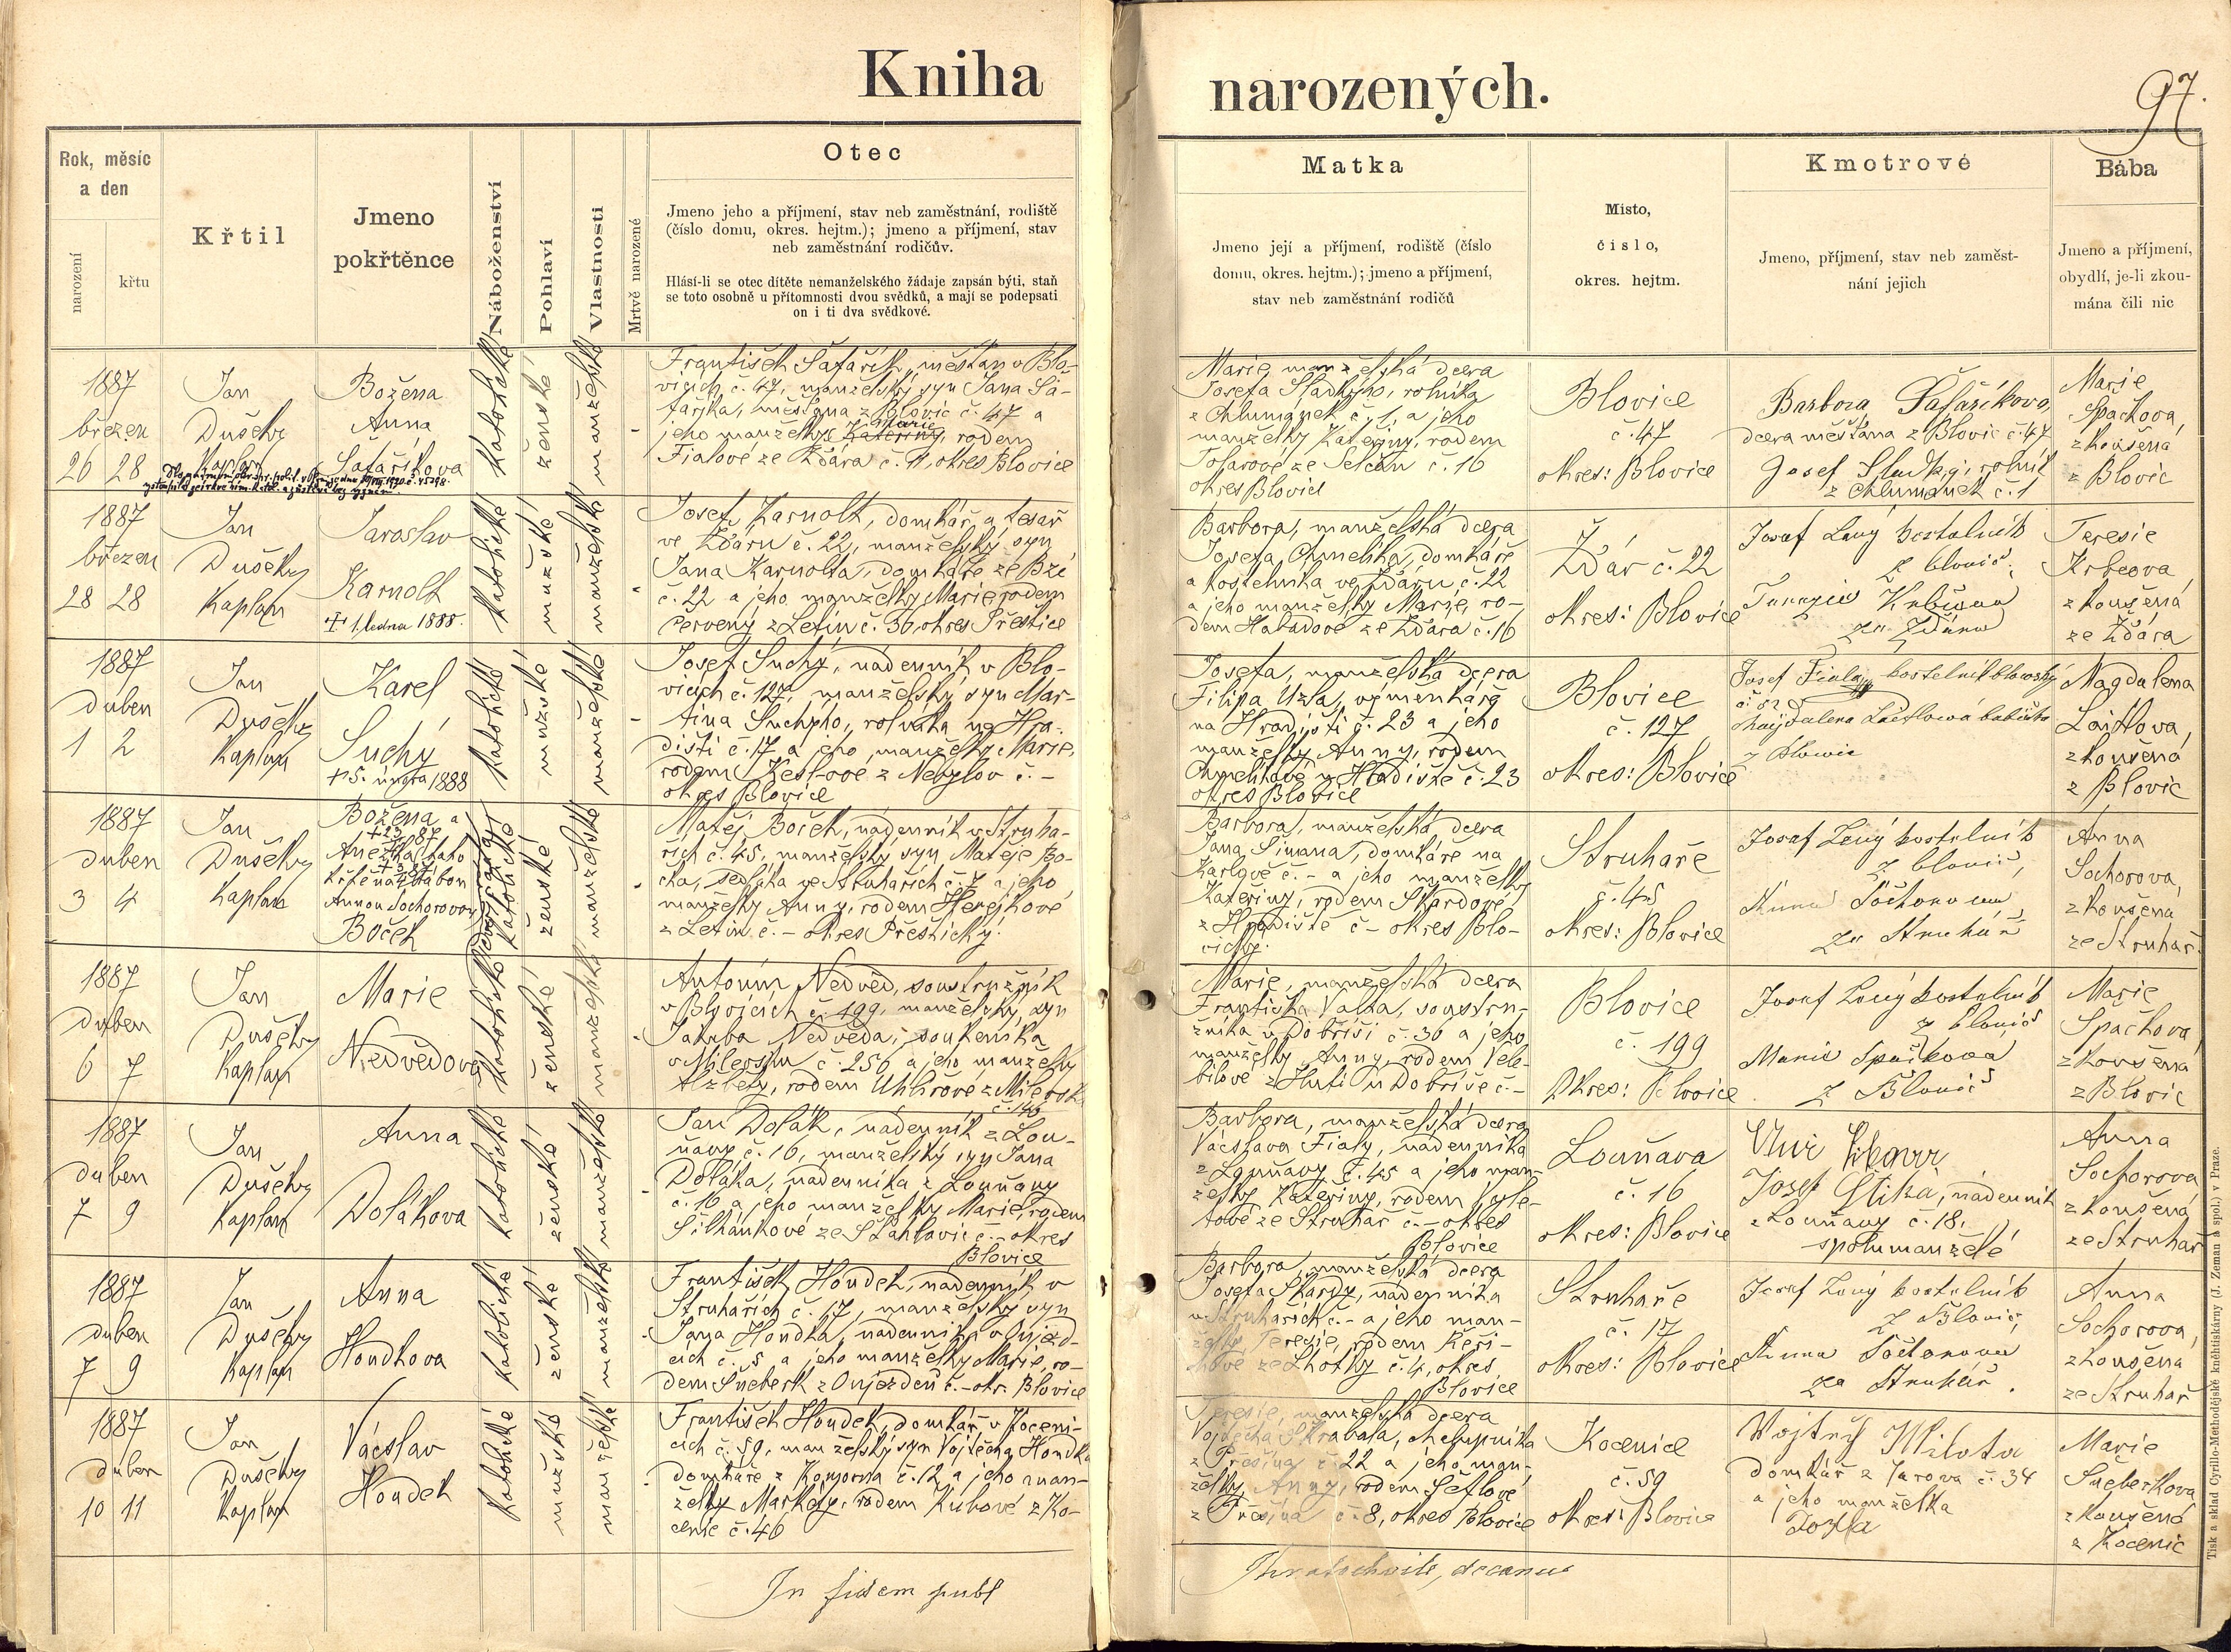 Kniha
narozených.
97.
Rok, měsíc
a den
narození
křtu
Křtil
Jmeno
pokřtěnce
Náboženství
Pohlaví
Vlastnosti
Mrtvě narozené
Otec
Jmeno jeho a příjmení, stav neb zaměstnání, rodiště
(číslo domu, okres. hejtm.); jmeno a příjmení, stav
neb zaměstnání rodičův.
Hlásí-li se otec dítěte nemanželského žádaje zapsán býti, staň
se toto osobně u přítomnosti dvou svědků, a mají se podepsati
on i ti dva svědkové.
Matka
Jmeno její a příjmení, rodiště (číslo
domu, okres. hejtm.); jmeno a příjmení,
stav neb zaměstnání rodičů
Misto,
číslo,
okres. hejtm.
Kmotrové
Jmeno, příjmení, stav neb zaměst-
nání jejich
Bába
Jmeno a příjmení,
obydlí, je-li zkou-
mána čili nic
1887
březen
26 28
Jan
Dušek
kaplan
Božena
Anna
Šafaříkova
katolické
ženské
manželské
František Šafařík, měšťan v Blo-
vicích č. 47, manželský syn Jana Ša-
faříka, měšťana z Blovic č. 47 a
jeho manželky Kateřiny, rodem
Marie
Fialové ze Ždára č. 11, okres Blovice
Marie, manželská dcera
Josefa Sladkýho, rolníka
z Chlumánek č. 1 a jeho
manželky Kateřiny, rodem
Tolarové ze Seečan č. 16
okres Blovice
Blovice
č. 47
okres: Blovice
Barbora Šafaříkova,
dcera měšťana z Blovic č. 47
Josef Sladký, rolník
z Chlumánek č. 1
Marie
Špačkova,
zkoušená
z Blovic
1887
březen
28 28
Jan
Dušek
kaplan
Jaroslav
Karnolt
† 1. ledna 1888.
katolické
mužské
manželské
Josef Karnolt, domkář a tesař
ve Ždáru č. 22, manželský syn
Jana Karnolta, domkáře ze Bzí
č. 22 a jeho manželky Marie rodem
Červený z Letin č. 36, okres Přeštice
Barbora, manželská dcera
Josefa Chmelíka, domkáře
a kostelníka ve Ždáru č. 22
a jeho manželky Marie, ro-
dem Habadové ze Ždára č. 16
Ždár č. 22
okres: Blovice
Josef Laný kostelník
z blovic,
Terezie
ze Ždáru
Teresie
Krbcova
zkoušená
ze Ždára
1887
duben
1 2
Jan
Dušek
kaplan
Karel
Suchý
† 5. února 1888
katolické
mužské
manželské
Josef Suchý, nádenník v Blo-
vicích č. 127, manželský syn Mar-
tina Suchýho, rolníka na Hra-
dišti č. 17 a jeho manželky Marie,
rodem Keslové z Nebylov č. -
okres Blovice
Josefa, manželská dcera
Filipa Uzla, výmenkáře
na Hradišti č. 23 a jeho
manželky Anny, rodem
Chmelíkové z Hradiště č. 23
okres Blovice
Blovice
č. 127
okres: Blovice
Josef Fiala, kostelník blovický
č. 52
Magdalena Laitlová babička
z Blowic
Magdalena
Laitlova,
zkoušená
z Blovic
1887
duben
3 4
Jan
Dušek
kaplan
Božena a
Anežka
Annou Sochorovou
Boček
katolické
ženské
manželské
Matěj Boček, nádenník v Struha-
řích č. 45, manželský syn Matěje Bo-
čka, sedláka ve Struhařích č. 7 a jeho
manželky Anny, rodem Herejkové
z Letin č. - okres Přeštický.
Barbora, manželská dcera
Jana Šimana, domkáře na
Karlově č. - a jeho manželky
Kateřiny, rodem Skardové
z Hradiště č - okres Blo-
vický.
Struhaře
č. 45
okres: Blovice
Josef Laný kostelník
z blovic,
Anna Sochorova
ze Struhař
Anna
Sochorova,
zkoušená
ze Struhař.
1887
duben
6 7
Jan
Dušek
kaplan
Marie
Nedvědova
katolické
ženské
manželské
Antonín Nedvěd, soustružník
v Blovicích č. 199, manželský syn
Jakuba Nedvěda, soukeníka
v Milevsku č. 256 a jeho manželky
Alžběty, rodem Uhlířové z Milevska
č. 146
Marie, manželská dcera
Františka Valta, soustru-
žníka v Dobříši č. 36 a jeho
manželky Anny, rodem Vele-
bilové z Huti u Dobříše č. -
Blovice
č. 199
Okres: Blovice
Josef Laný kostelník
z blovic
Marie Špačkova
z Blovic
Marie
Špačkova,
zkoušená
z Blovic
1887
duben
7 9
Jan
Dušek
kaplan
Anna
Dolákova
katolické
ženské
manželské
Jan Dolák, nádenník z Lou-
ňavy č. 16, manželský syn Jana
Doláka, nádenníka z Louňavy
č. 16 a jeho manželky Marie, rodem
Šilhánkové ze Šťáhlavic č. - okres
Blovice
Barbora, manželská dcera
Václava Fialy, nádenníka
z Louňavy č. 45 a jeho man-
želky Kateřiny, rodem
ze Struhař č. - okres
Blovice
Louňava
č. 16
okres: Blovice
Josef Stika, nádenník
z Louňavy č. 18.
spolumanželé
Anna
Sochorova
zkoušená
ze Struhař
1887
duben
7 9
Jan
Dušek
kaplan
Anna
Houdkova
katolické
ženské
manželské
František Houdek, nádenník v
Struhařích č. 17, manželský syn
Jana Houdka, nádenníka v Oujezd-
cích č. 5 a jeho manželky Marie, ro-
dem Sneberk z Oujezdce č. - okr. Blovice
Barbora, manželská dcera
Josefa Skardy, nádenníka
v Struhařích č. - a jeho man-
želky Teresie, rodem Keři-
kové ze Lhotky č. 4, okres
Blovice
Struhaře
č. 17
okres: Blovice
Josef Laný kostelník
z Blovic,
Anna Sochorova
ze Struhař.
Anna
Sochorova,
zkoušená
ze Struhař
1887
duben
10 11
Jan
Dušek
kaplan
Václav
Houdek
katolické
mužské
manželské
František Houdek, domkář v Koceni-
cích č. 59, manželský syn Vojtěcha Houdka
domkáře z Kamorna č. 12 a jeho man-
želky Markéty, rodem Kubové z Ko-
cenic č. 46
Teresie, manželská dcera
Vojtěcha Škrabala, chalupníka
z Přešína č. 22 a jeho man-
želky Anny, rodem Šetlové
z Přešína č. 8, okres Blovice
Kocenice
č. 59
okres: Blovice
Wojtěch Milota
domkář z Jarova č. 34
a jeho manželka
Marie
Sneberkova
zkoušená
z Kocenic
In fidem publ
decanus
Tisk a sklad Cyrillo-Methodějské kněhtiskárny (J. Zeman a spol.) v Praze.